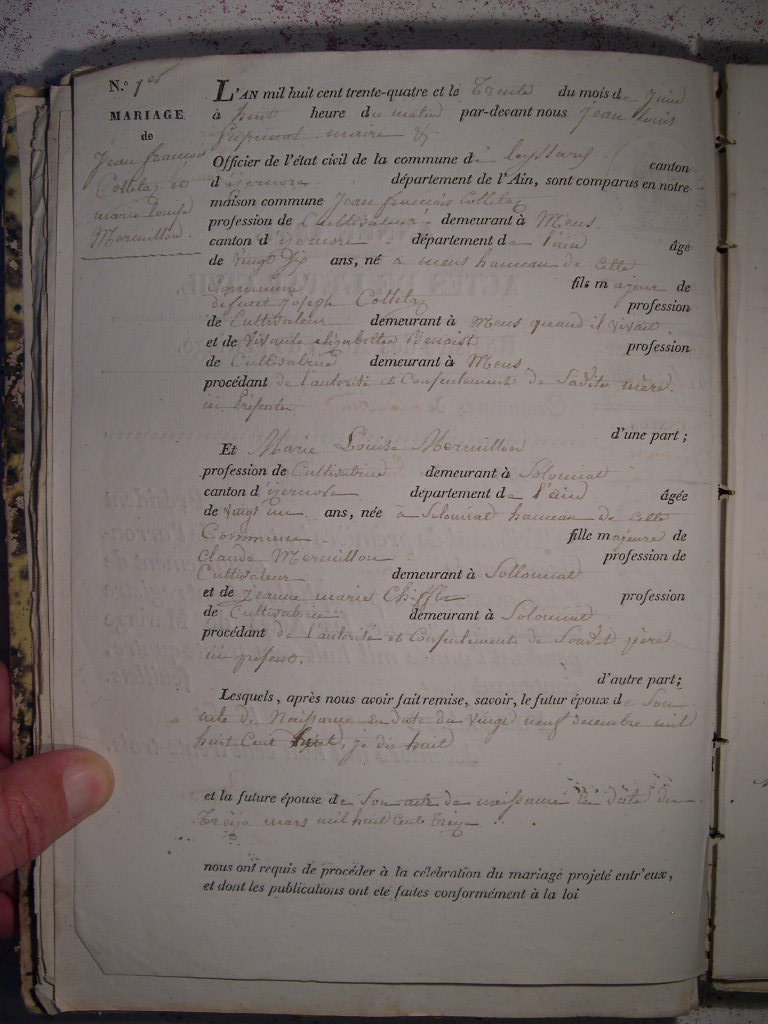 N.° 1er
L'AN mil huit cent trente-quatre et le Trente du mois de Juin
à huit heure du matin par-devant nous jean louis
maire &
MARIAGE
de
Jean françois
Colletaz et
marie Louise
Mermillon
Officier de l'état civil de la commune de leyssard canton
d'izernore département de l'Ain, sont comparus en notre
maison commune Jean françois Colletaz
profession de Cultivateur demeurant à Mens
canton d'izernore département de l'ain âgé
de vingt six ans, né à mens hameau de cette
Commune fils majeur de
defunt Joseph Colletaz profession
de Cultivateur demeurant à Mens quand il vivait
et de vivante elizabette Benoist profession
de Cultivatrice demeurant à Mens
procédant de l'autorité et Consentement de Sadite mère
ici présente
d'une part ;
Et Marie Louise Mermillon
profession de Cultivatrice demeurant à Solonniat
canton d'izernore département de l'ain âgée
de vingt un ans, née à Solonniat hameau de cette
Commune fille majeure de
Claude Mermillon profession de
Cultivateur demeurant à Sollonniat
et de jeanne marie Chifflet profession
de Cultivatrice demeurant à Solonniat
procédant de l'autorité et Consentement de Sondit père
ici présent.
d'autre part ;
Lesquels, après nous avoir fait remise, savoir, le futur époux de Son
acte de Naissance en date du vingt neuf decembre mil
huit Cent huit, je dis huit
et la future épouse de Son acte de naissance en date du
Treize mars mil huit Cent Treize
nous ont requis de procéder à la célébration du mariage projeté entr'eux,
et dont les publications ont été faites conformément à la loi